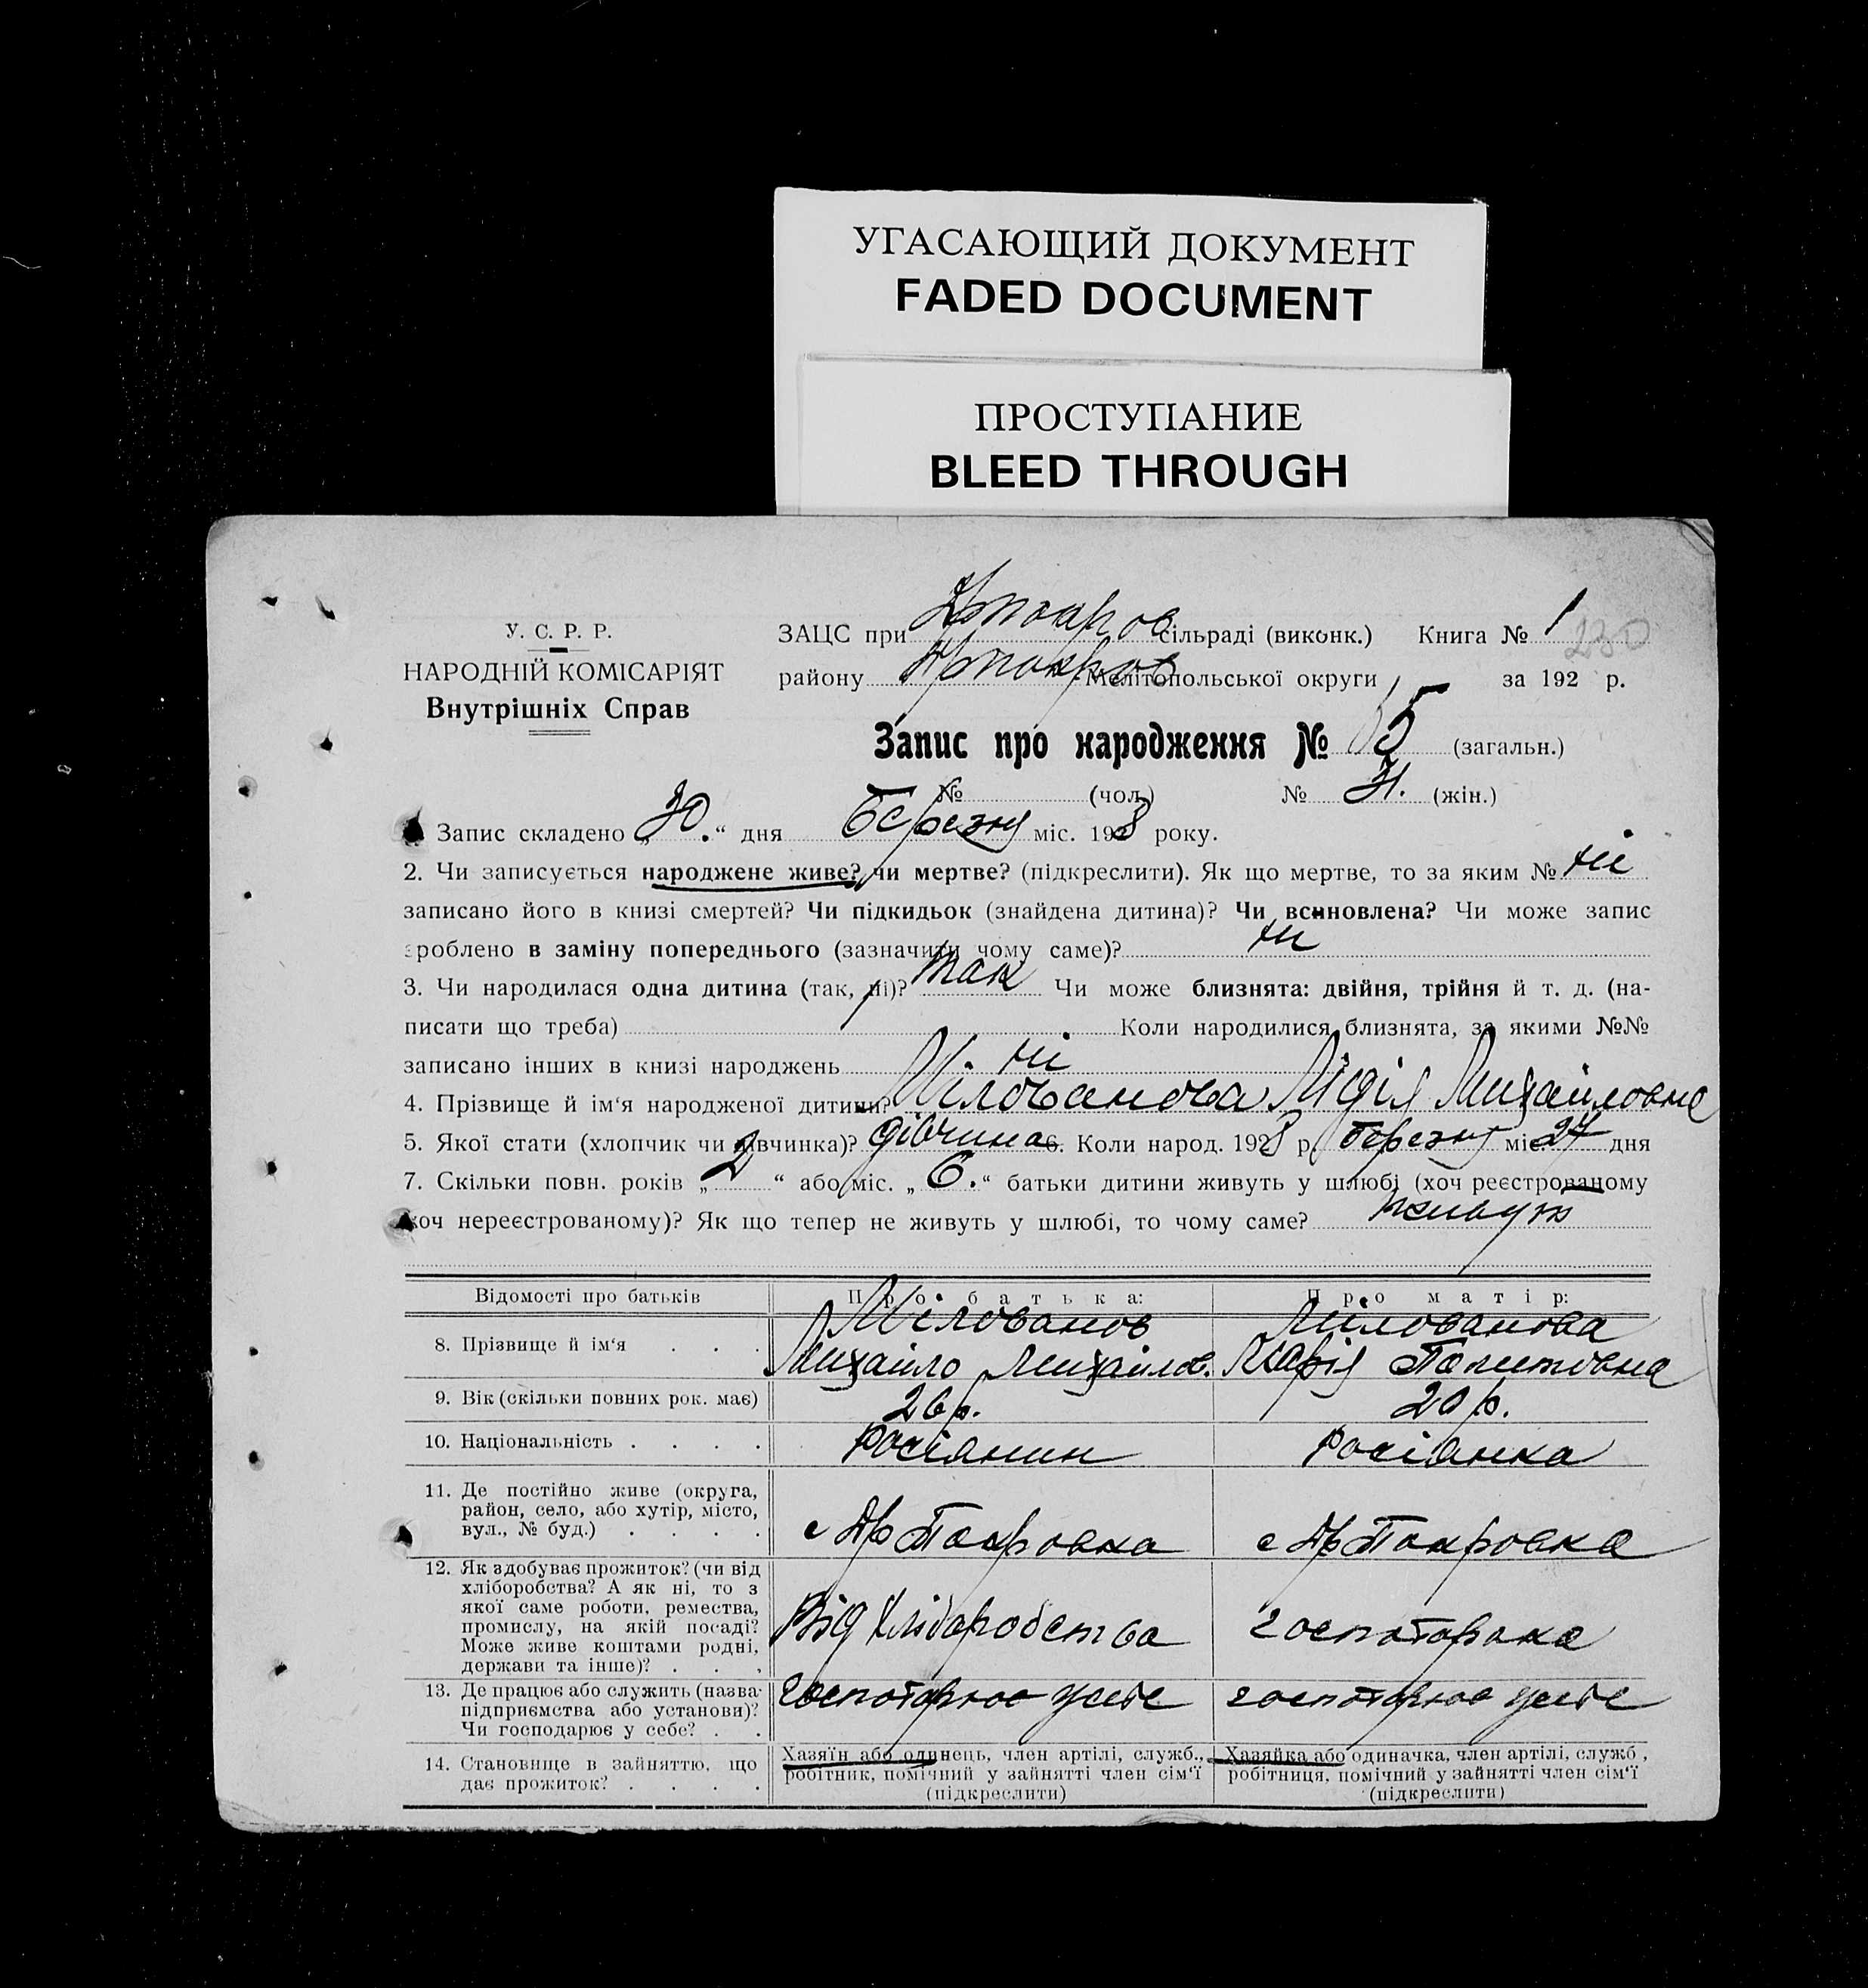 УГАСАЮЩИЙ ДОКУМЕНТ
FADED DOCUMENT
ПРОСТУПАНИЕ
BLEED THROUGH
У. С. Р. Р.
НАРОДНІЙ КОМІСАРІЯТ
Внутрішніх Справ
ЗАЦС при сільраді (виконк.) Книга № 1 230
району Мелітопольської округи за 192 р.
Запис про народження № 55 (загальн.)
№ (чол.) № 31. (жін.)
Запис складено „30.“ дня березня міс. 1928 року.
2. Чи записується народжене живе? чи мертве? (підкреслити). Як що мертве, то за яким № ні
записано його в книзі смертей? Чи підкидьок (знайдена дитина)? Чи всиновлена? Чи може запис
зроблено в заміну попереднього (зазначити чому саме)? ні
3. Чи народилася одна дитина (так, ні)? так Чи може близнята: двійня, трійня й т. д. (на-
писати що треба) Коли народилися близнята, за якими №№
записано інших в книзі народжень ні
4. Прізвище й ім‘я народженої дитини? Мілованова Лідія Михайловна
5. Якої стати (хлопчик чи дівчинка)? дівчина 6. Коли народ. 1928 р. березня міс. 27 дня
7. Скільки повн. років „2“ або міс. „6.“ батьки дитини живуть у шлюбі (хоч реєстрованому
хоч нереєстрованому)? Як що тепер не живуть у шлюбі, то чому саме? живут
Відомості про батьків Про батька: Про матір:
8. Прізвище й ім‘я . . . Мілованов Михайло Михайлов. Мілованова Марія
9. Вік (скільки повних рок. має) 26 р. 20 р.
10. Національність . . . . росіянин росіянка
11. Де постійно живе (округа,
район, село, або хутір, місто,
вул., № буд.) . . . . с Др Покровка с Др Покровка
12. Як здобуває прожиток? (чи від
хліборобства? А як ні, то з
якої саме роботи, ремества,
промислу, на якій посаді?
Може живе коштами родні,
держави та інше)? . . . Від хліборобства
13. Де працює або служить (назва
підприємства або установи)?
Чи господарює у себе? . .
14. Становище в зайняттю, що
дає прожиток? . . . .
Хазяїн або одинець, член артілі, служб.,
робітник, помічний у зайнятті член сім‘ї
(підкреслити)
Хазяйка або одиначка, член артілі, служб.,
робітниця, помічний у зайнятті член сім‘ї
(підкреслити)